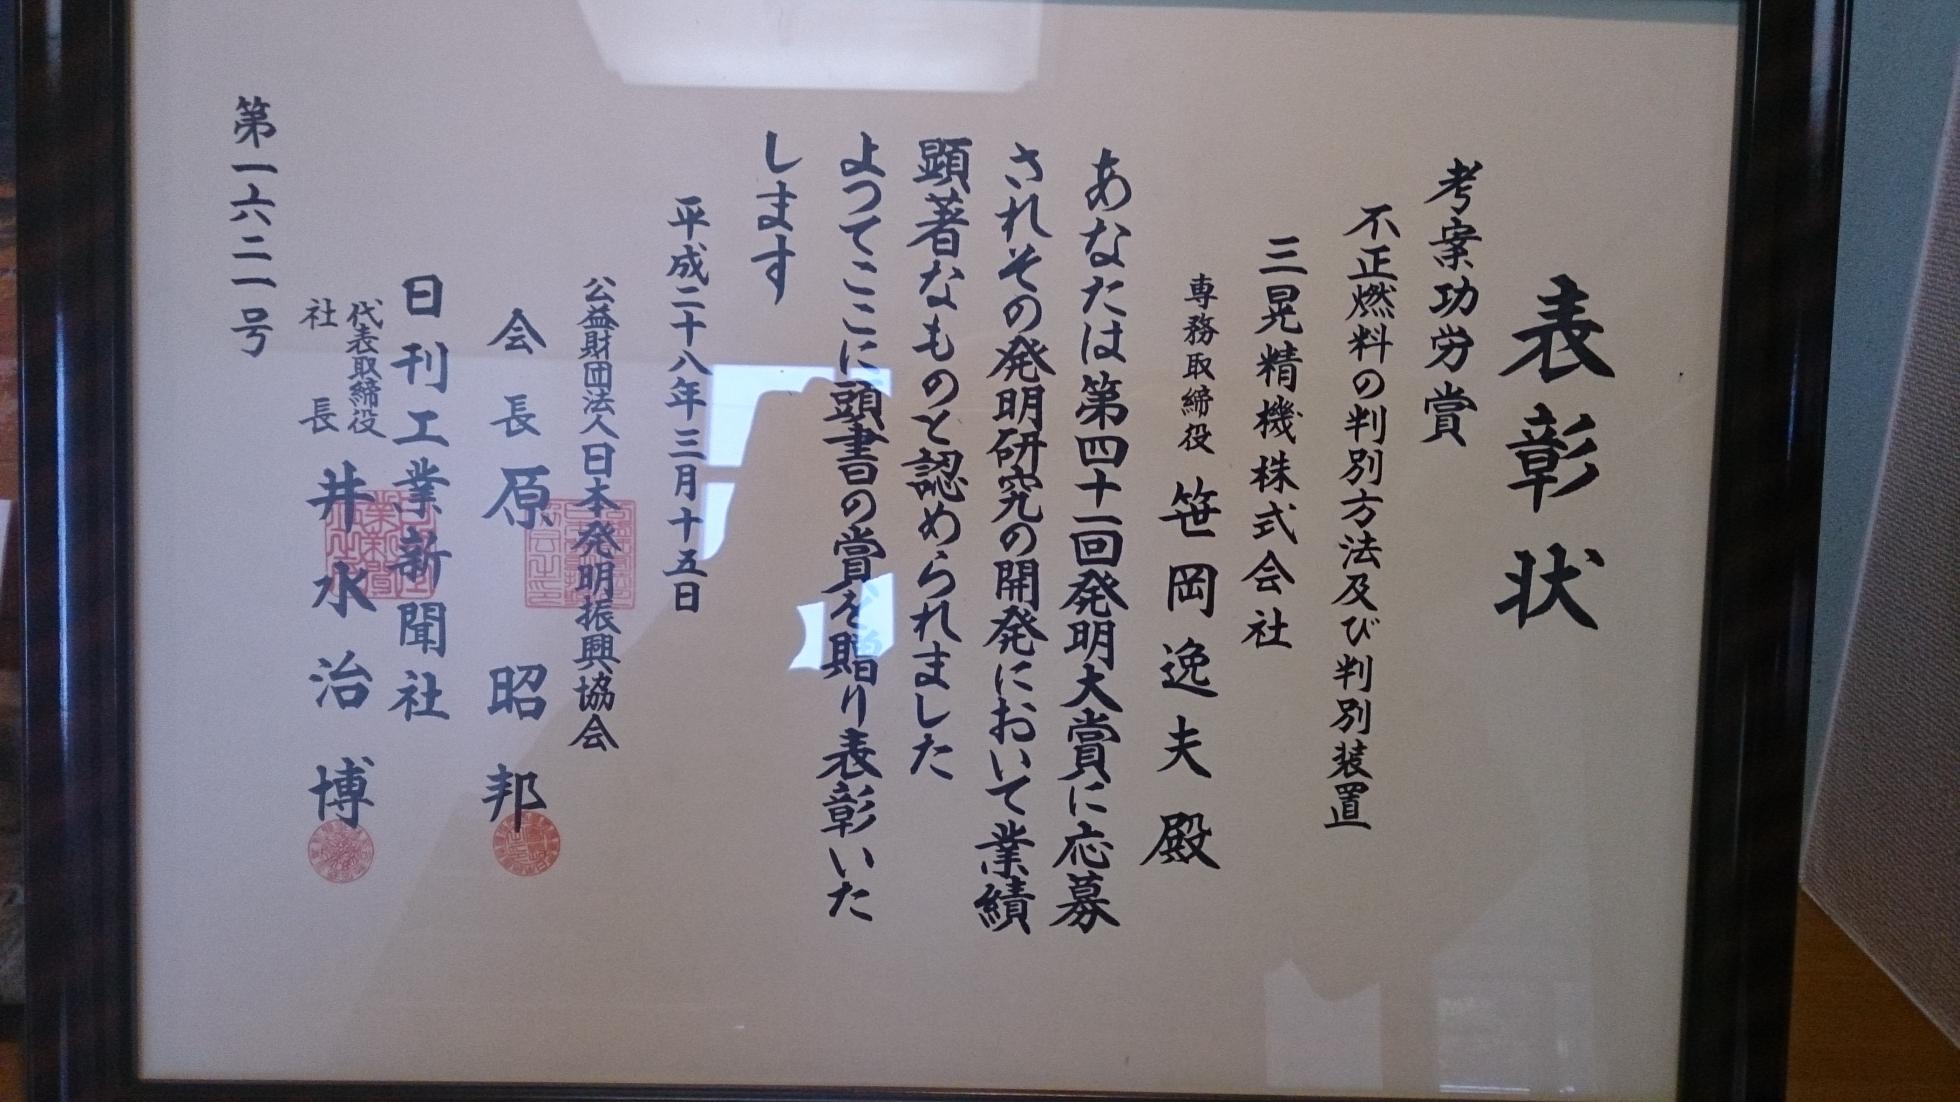 表彰状
考案功労賞
不正燃料の判別方法及び判別装置
三晃精機株式会社
専務取締役 笹岡逸夫殿
あなたは第四十一回発明大賞に応募
されその発明研究の開発において業績
顕著なものと認められました
よつてここに頭書の賞を贈り表彰いた
します
平成二十八年三月十五日
公益財団法人日本発明振興協会
会長 原昭邦
日刊工業新聞社
代表取締役
社長 井水治博
第一六二一号